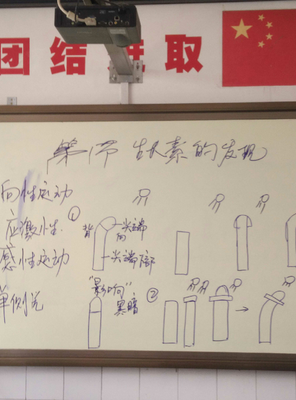 团结进取
第1节 生长素的发现
向性运动
应激性
感性运动
单侧光
①
背
向
尖端
尖端下部
"影响"
黑暗
②